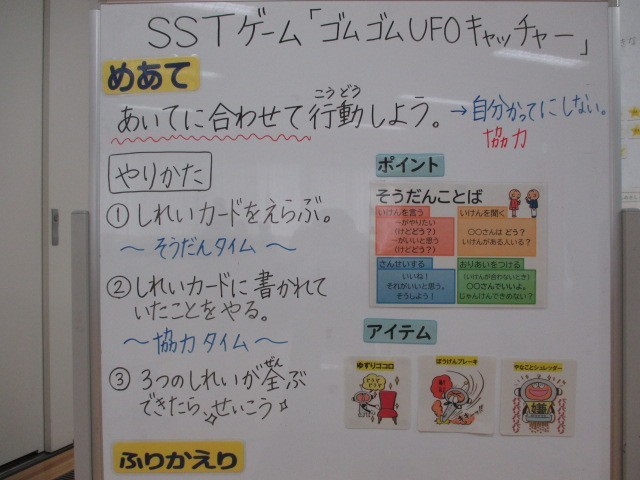 SSTゲーム「ゴムゴムUFOキャッチャー」
めあて
こうどう
あいてに合わせて行動しよう。→自分かってにしない。
協力
やりかた
① しれいカードをえらぶ。
～そうだんタイム～
② しれいカードに書かれて
いたことをやる。
～協力タイム～
ぜん
③ 3つのしれいが全ぶ
できたらせいこう
ふりかえり
ポイント
そうだんことば
いけんを言う
～がやりたい
(けどどう?)
～がいいと思う
(けどどう?)
いけんを聞く
〇〇さんは どう?
いけんがある人いる?
さんせいする
いいね!
それがいいと思う。
そうしよう!
おりあいをつける
(いけんが合わないとき)
〇〇さんでいいよ。
じゃんけんできめない?
アイテム
ゆずりゴコロ
ぼうげんブレーキ
やなことシュレッダー
嫌